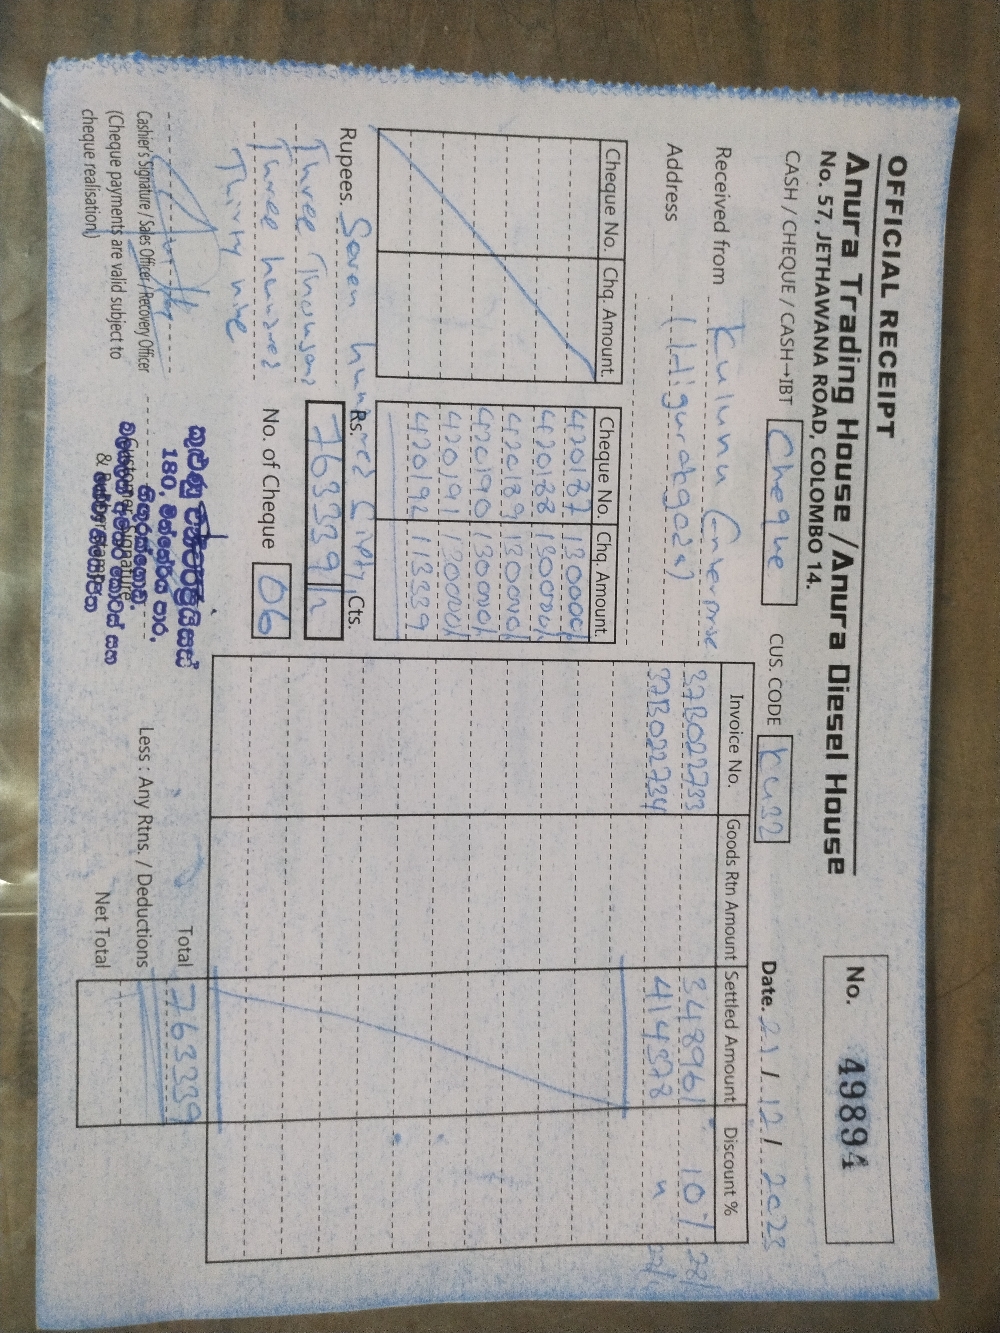 OFFICIAL RECEIPT
Anura Trading House / Anura Diesel House
No. 57, JETHAWANA ROAD, COLOMBO 14.
No. 49894
CASH / CHEQUE / CASH→IBT Cheque
CUS. CODE KU32
Date. 21 / 12 / 2023
Received from Kulunu
Address
Cheque No. Chq. Amount.
Cheque No. Chq. Amount.
420187 130000/
420188 130000/
420189 130000/
420190 130000/
420191 130000/
420192 113339
Invoice No. Goods Rtn Amount Settled Amount Discount %
37B022733 348961 10%
37B022734 414378 "
Rupees. Seven hundred Sixty
Three Thousand
Three hundred
Thirty nine
Rs. Cts.
763339/
No. of Cheque 06
Total 763339
Less : Any Rtns. / Deductions
Net Total
Cashier's Signature / Sales Officer / Recovery Officer
(Cheque payments are valid subject to
cheque realisation)
Customer Signature
& Rubber Stamp
180,